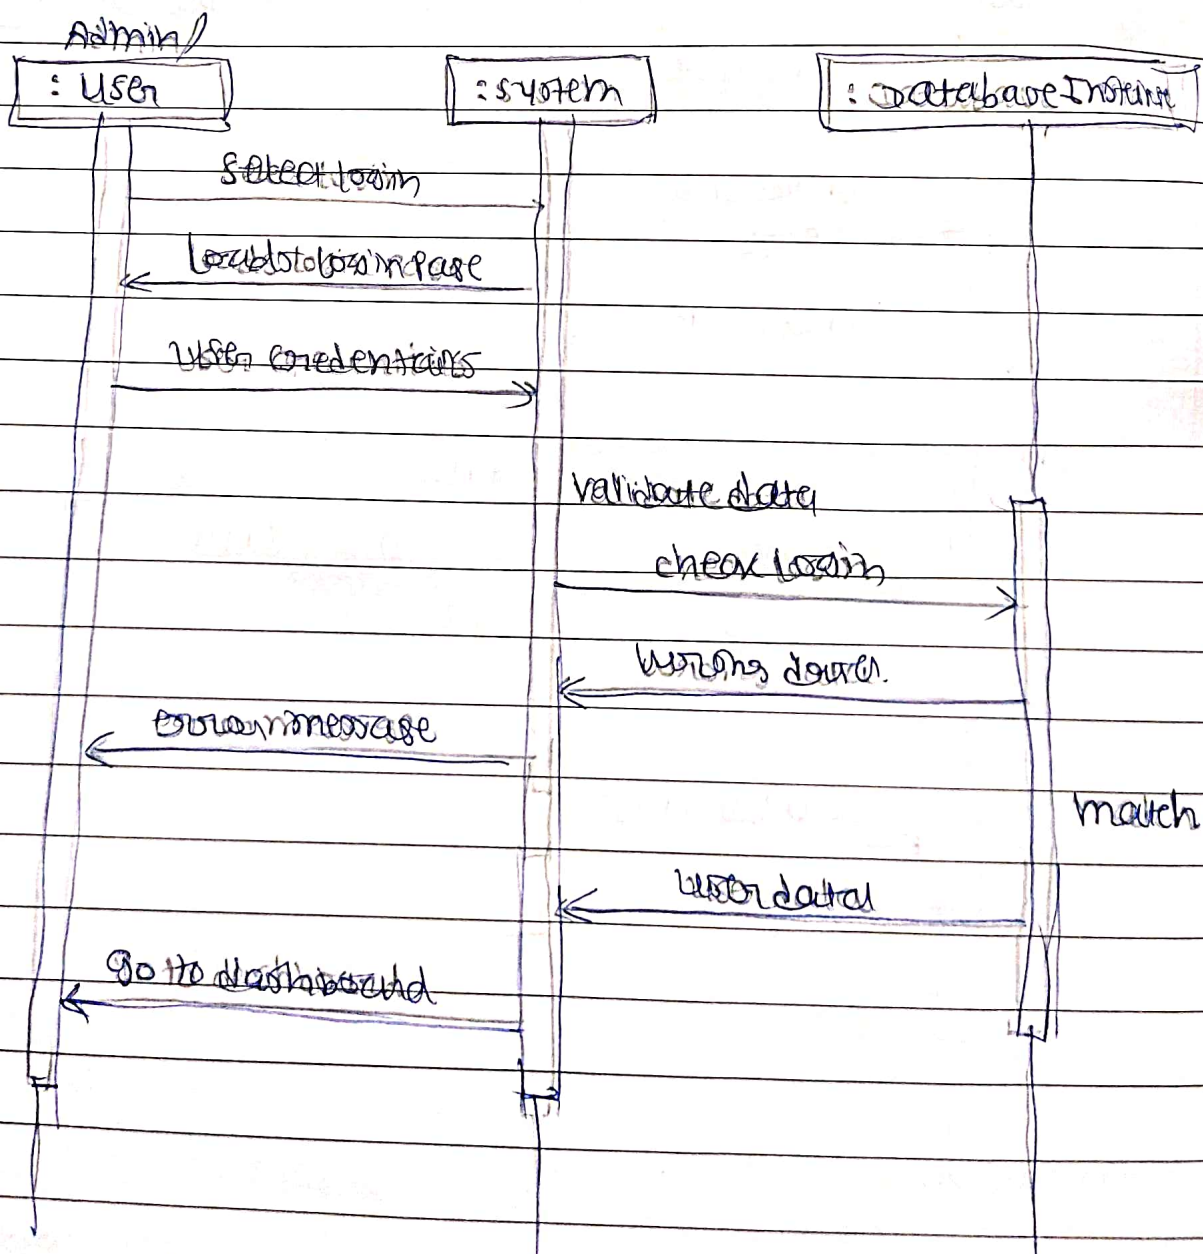 Admin/
: User
:system
: Database
select login
login page
User credentials
validate data
check login
wrong
error message
match
user data
go to dashboard